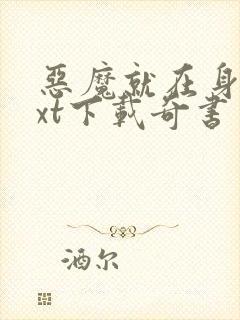 惡魔就在身
xt下載奇書
酒尔